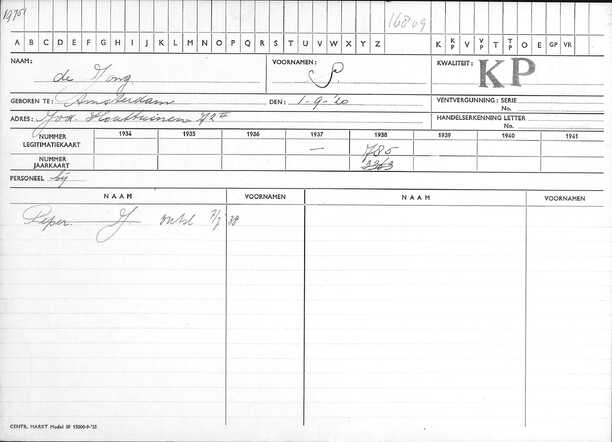 19751
16809
A B C D E F G H I J K L M N O P Q R S T U V W X Y Z K K P V V P T T P O E GP VR
NAAM: de Jong. VOORNAMEN: S. KWALITEIT: KP
GEBOREN TE: Amsterdam DEN: 1-9-'20 VENTVERGUNNING: SERIE No.
ADRES: Jod. Houttuinen HANDELSERKENNING LETTER No.
NUMMER LEGITIMATIEKAART 1934 1935 1936 1937 1938 1939 1940 1941
— 785
NUMMER JAARKAART 3263
PERSONEEL bij
NAAM VOORNAMEN NAAM VOORNAMEN
Peper. J 38
CENTR. MARKT Model 59 15000-9-'35